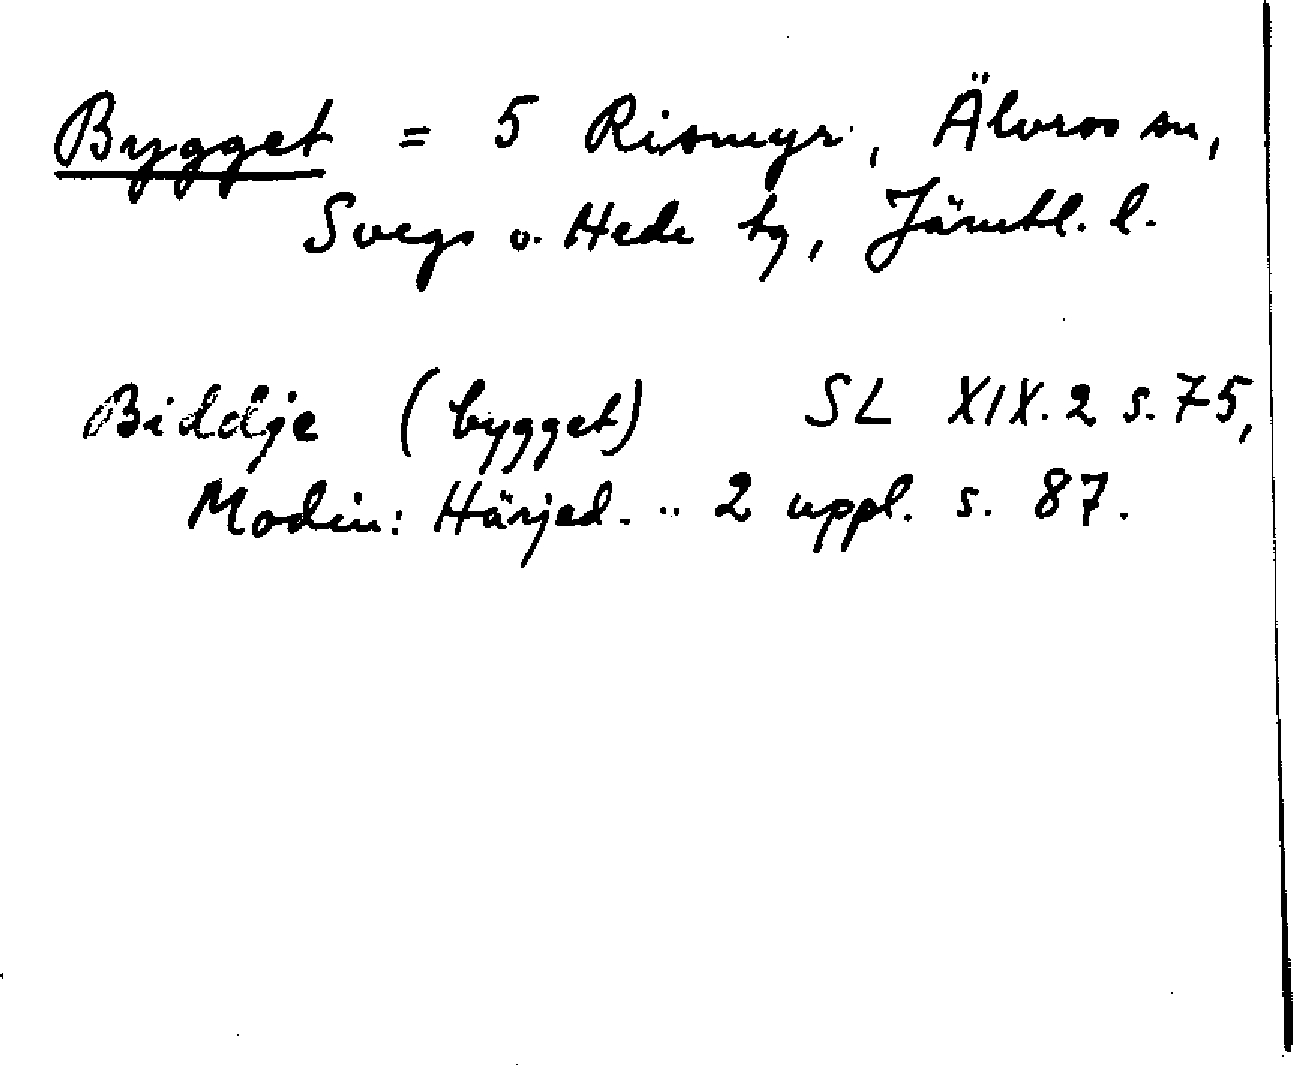 Bygget = 5 Rismyr, Älvros sn,
Svegs o. Hede tg, Jämtl. l.
Biddje (bygget) SL XIX.2 s. 75,
Modin: Härjed. .. 2 uppl. s. 87.